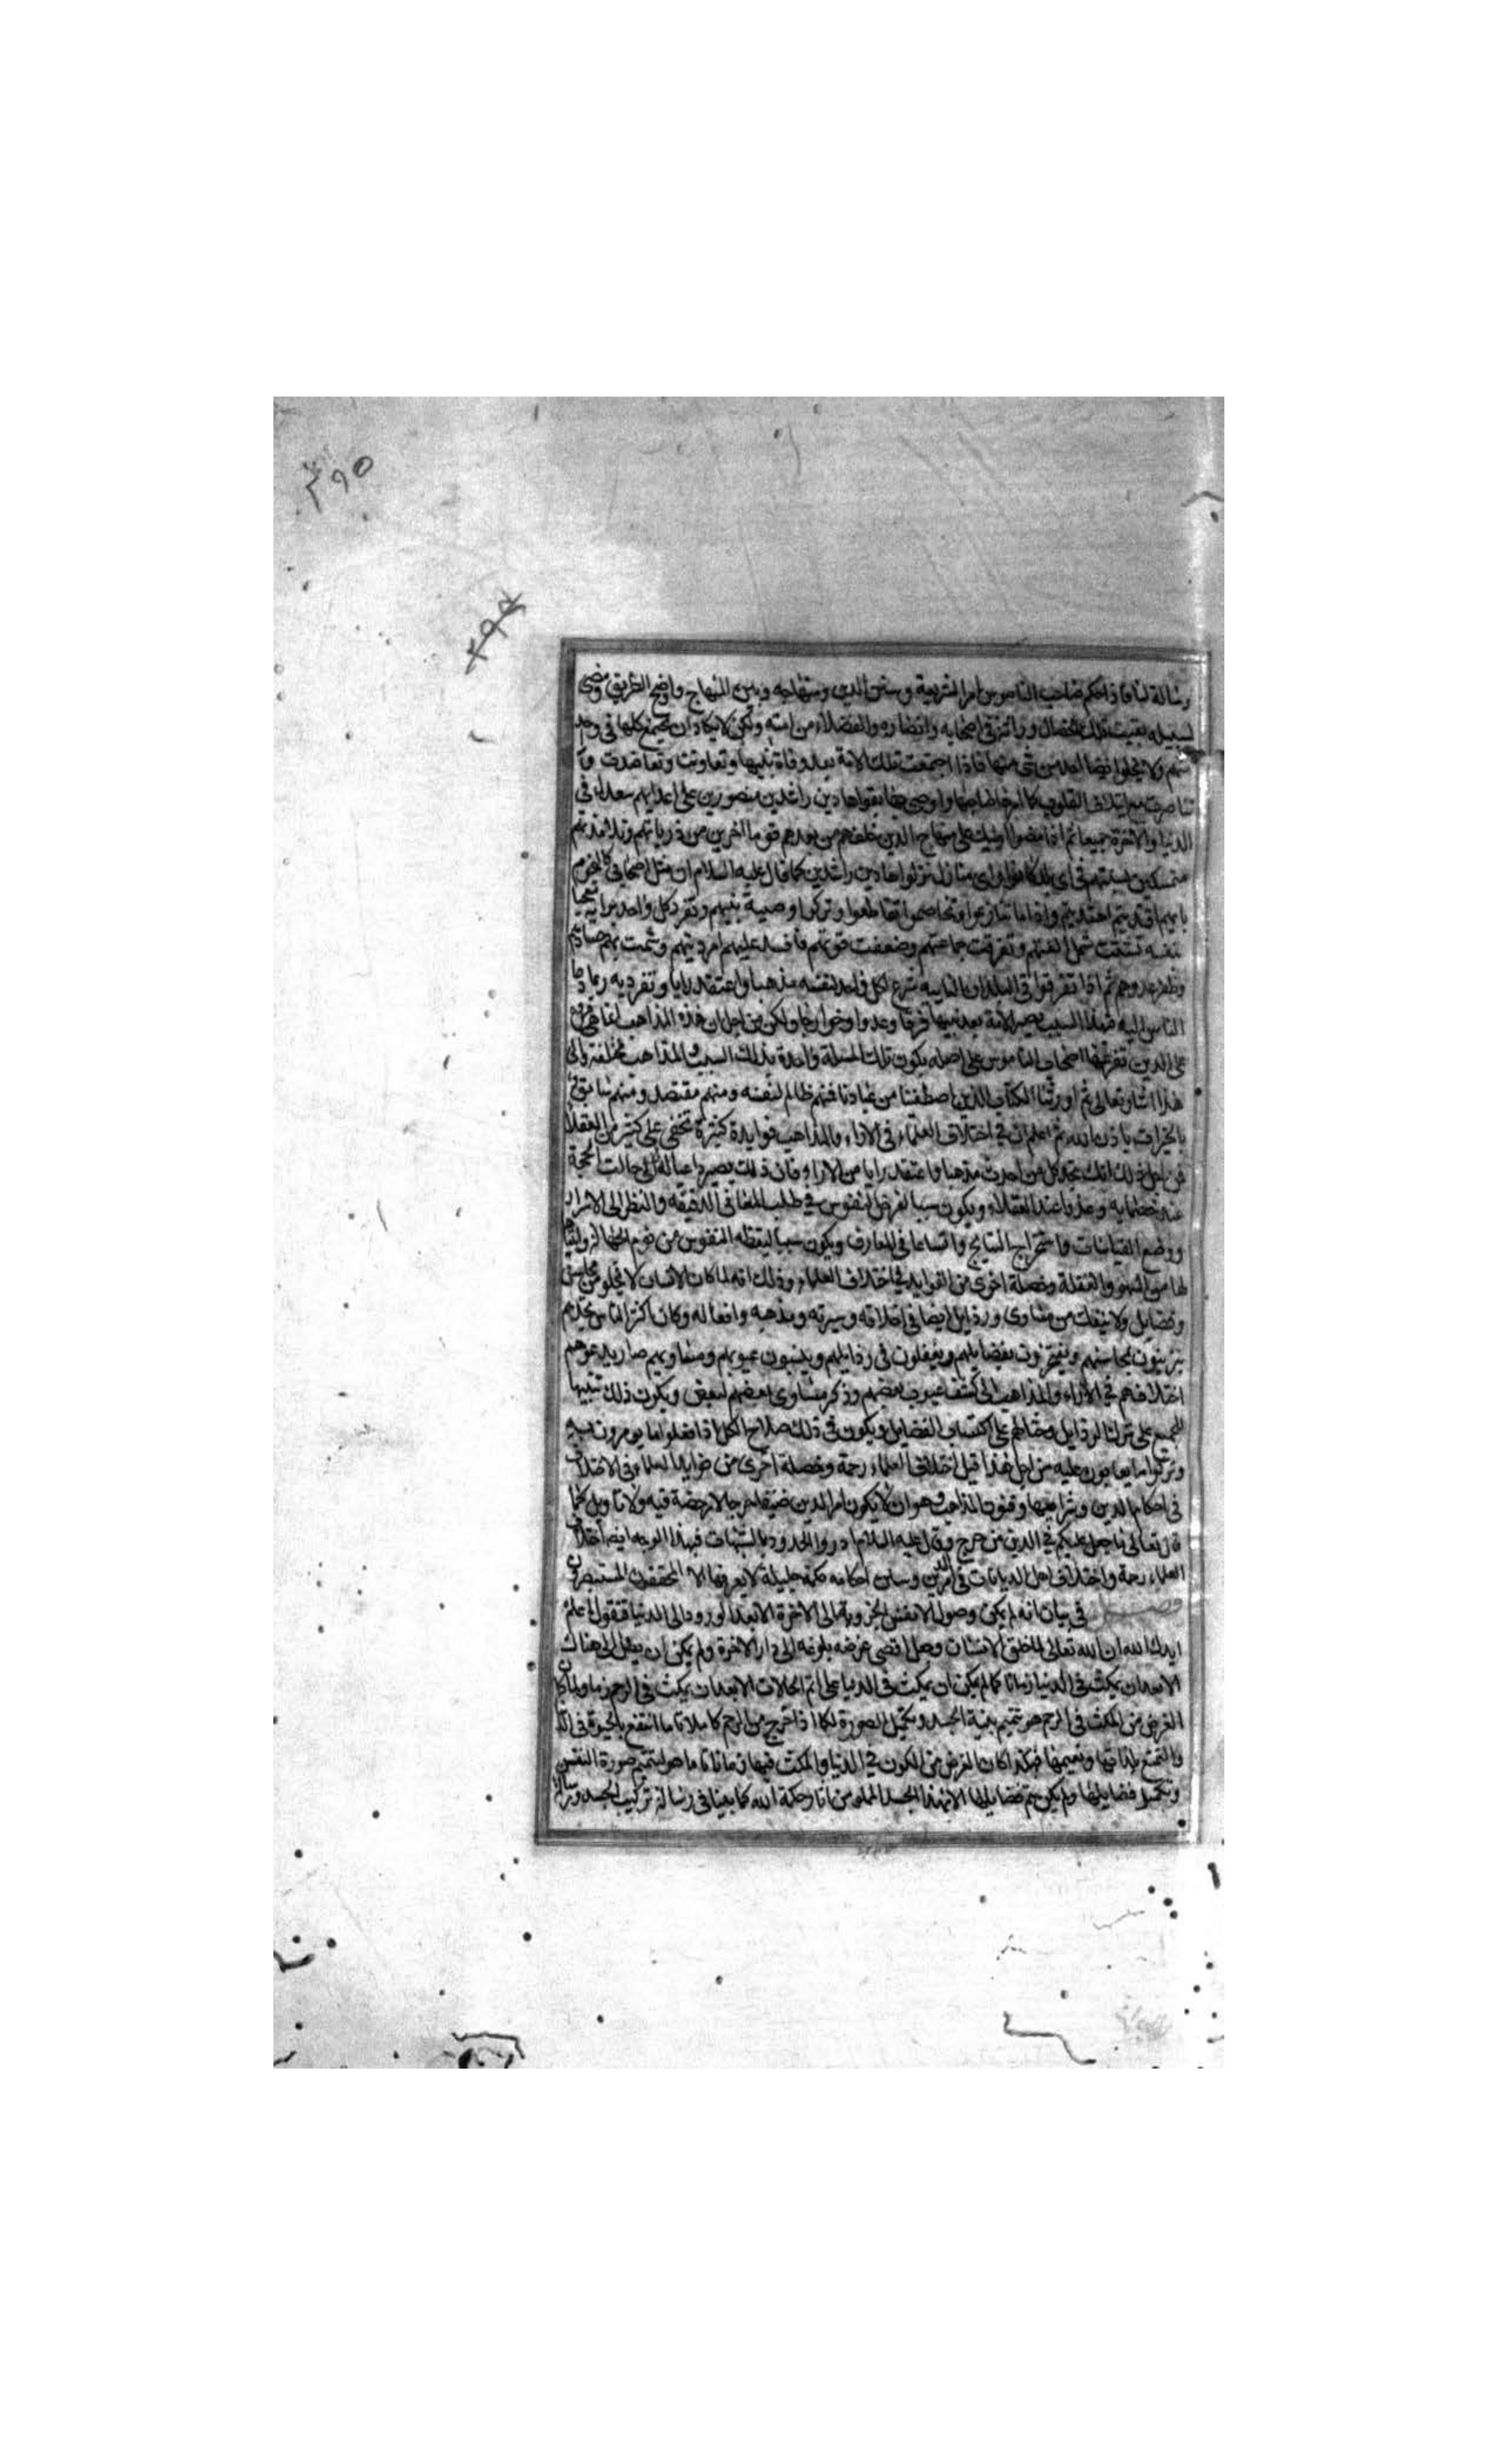 ٣٩٥
٣٩٤
رسالة لنا فاذا حكم صاحب الناموس امر الشريعة وسنن الدين ومنهاجه وبين المنهاج واوضح الطريق ومضى
لسبيله بقيت تلك الخصال وراثة في اصحابه وانصاره والفضلاء من امته ولكن لا يكاد ان تجتمع كلها في واحد
منهم ولا يخلوا ايضا احد من شئ منها فاذا اجتمعت تلك الامة بعد وفاة نبيها وتعاونت وتعاضدت و
تناصرت مع ايتلاف القلوب كما امر صاحبها واوصى بها بقوا هادين راشدين منصورين على اعدايهم سعداء في
الدنيا والاخرة جميعا ثم اذا مضوا اوليك على منهاج الدين خلفهم من بعدهم قوما اخرين من ذرياتهم وتلامذتهم
متمسكين بسنتهم في اى بلد كانوا واى منازل نزلوا هادين راشدين كما قال عليه السلام ان مثل اصحابي كالنجوم
بايهم اقتديتم اهتديتم واذا ما تنازعوا وتخاصموا تقاطعوا وتركوا وصية نبيهم وتفرد كل واحد برايه معجبا
بنفسه تشتت شمل الفتهم وتفرقت جماعتهم وضعفت قوتهم فافسد عليهم امر دينهم وشمت بهم حسادهم
وظفر عدوهم ثم اذا تفرقوا في البلدان النايية شرع كل واحد لنفسه مذهبا واعتقد رايا وتفرد به ربما دعا
الناس اليه فبهذا السبب يصير الامة بعد نبيها فرقا وعدوا وخوارجا ولكن من اجل ان هذه المذاهب لها هى فروع
على الدين تفرعها اصحاب الناموس على اصله يكون تلك المسئلة واحدة بذلك السبب والمذاهب مختلفة والى
هذا اشار تعالى ثم اورثنا الكتاب الذين اصطفينا من عبادنا فمنهم ظالم لنفسه ومنهم مقتصد ومنهم سابق
بالخيرات باذن الله ثم اعلم ان في اختلاف العلماء في الاراء والمذاهب فوايدة كثيرة تخفى على كثير من العقلاء
فمن اجل ذلك انك تجد كل من احدث مذهبا واعتقد رايا من الاراء فان ذلك يصير داعيا له الى جالب الحجة
عند خصمايه وعذرا عند العقلاء ويكون سببا لغرض النفوس في طلب المعانى الدقيقه والنظر الى الاسرار
ووضع القياسات واستخراج النتايج واتساعا في المعارف ويكون سببا ليقظه النفوس من نوم الجهالة وانتباها
لها من السهو والغفلة وخصلة اخرى من الفوايد في اختلاف العلماء وذلك انه لما كان الانسان لا يخلو من محاسن
وفضايل ولا ينفك من مساوى ورذايل ايضا في اخلاقه وسيرته ومذهبه وافعاله وكان اكثر الناس تجدهم
يزينون بمحاسنهم ويفتخرون بفضايلهم ويغفلون في رذايلهم وينسبون عيوبهم ومساويهم صار يدعوهم
اختلافهم في الاراء والمذاهب الى كشف عيوب بعضهم وذكر مساوى بعضهم لبعض ويكون ذلك تنبيها
للجميع على ترك الرذايل وحثا لهم على اكتساب الفضايل ويكون في ذلك صلاح الكل اذا فعلوا ما يومرون به
وتركوا ما يعابون عليه من اجل هذا قيل اختلاف العلماء رحمة وخصلة اخرى من فوايد العلماء في الاختلاف
في احكام الدين وشرايعها وفنون المذاهب وهو ان لا يكون امر الدين ضيقا حرجا لا رخصة فيه ولا تاويل كما
قال تعالى ما جعل عليكم في الدين من حرج وقال عليه السلام ادروا الحدود بالشبهات فبهذا الوجه ايضا اختلاف
العلماء رحمة واختلاف اهل الديانات في امر الدين وسنن احكامه حكمة جليلة لا يعرفها الا المحققون المستبصرون
فصـــل في بيان انه لم يمكن وصول الانفس الجزوية الى الاخرة الا بعد الورود الى الدنيا فنقول اعلم
ايدك الله ان الله تعالى لما خلق الانسان وجعل اقصى غرضه بلوغه الى دار الاخرة ولم يمكن ان يصل الى هناك
الا بعد ان يمكث في الدنيا زمانا كما لم يمكن ان يمكث في الدنيا على اتم الحالات الا بعد ان يمكث في الرحم زما ولما كان
الغرض من المكث في الرحم هو تتميم بنية الجسد وتكميل الصورة لكل اذا خرج من الرحم كاملا تاما انتفع بالحيوة في الدنيا
والتمتع بلذاتها ونعيمها فهكذا كان الغرض من الكون في الدنيا والمكث فيها زمانا تاما هو لتتميم صورة النفس
وتكميل فضايلها ولم يكن تتم فضايلها الا بهذا الجسد المملو من اثار حكمة الله كما بينا في رسالة تركيب الجسد ورسالة